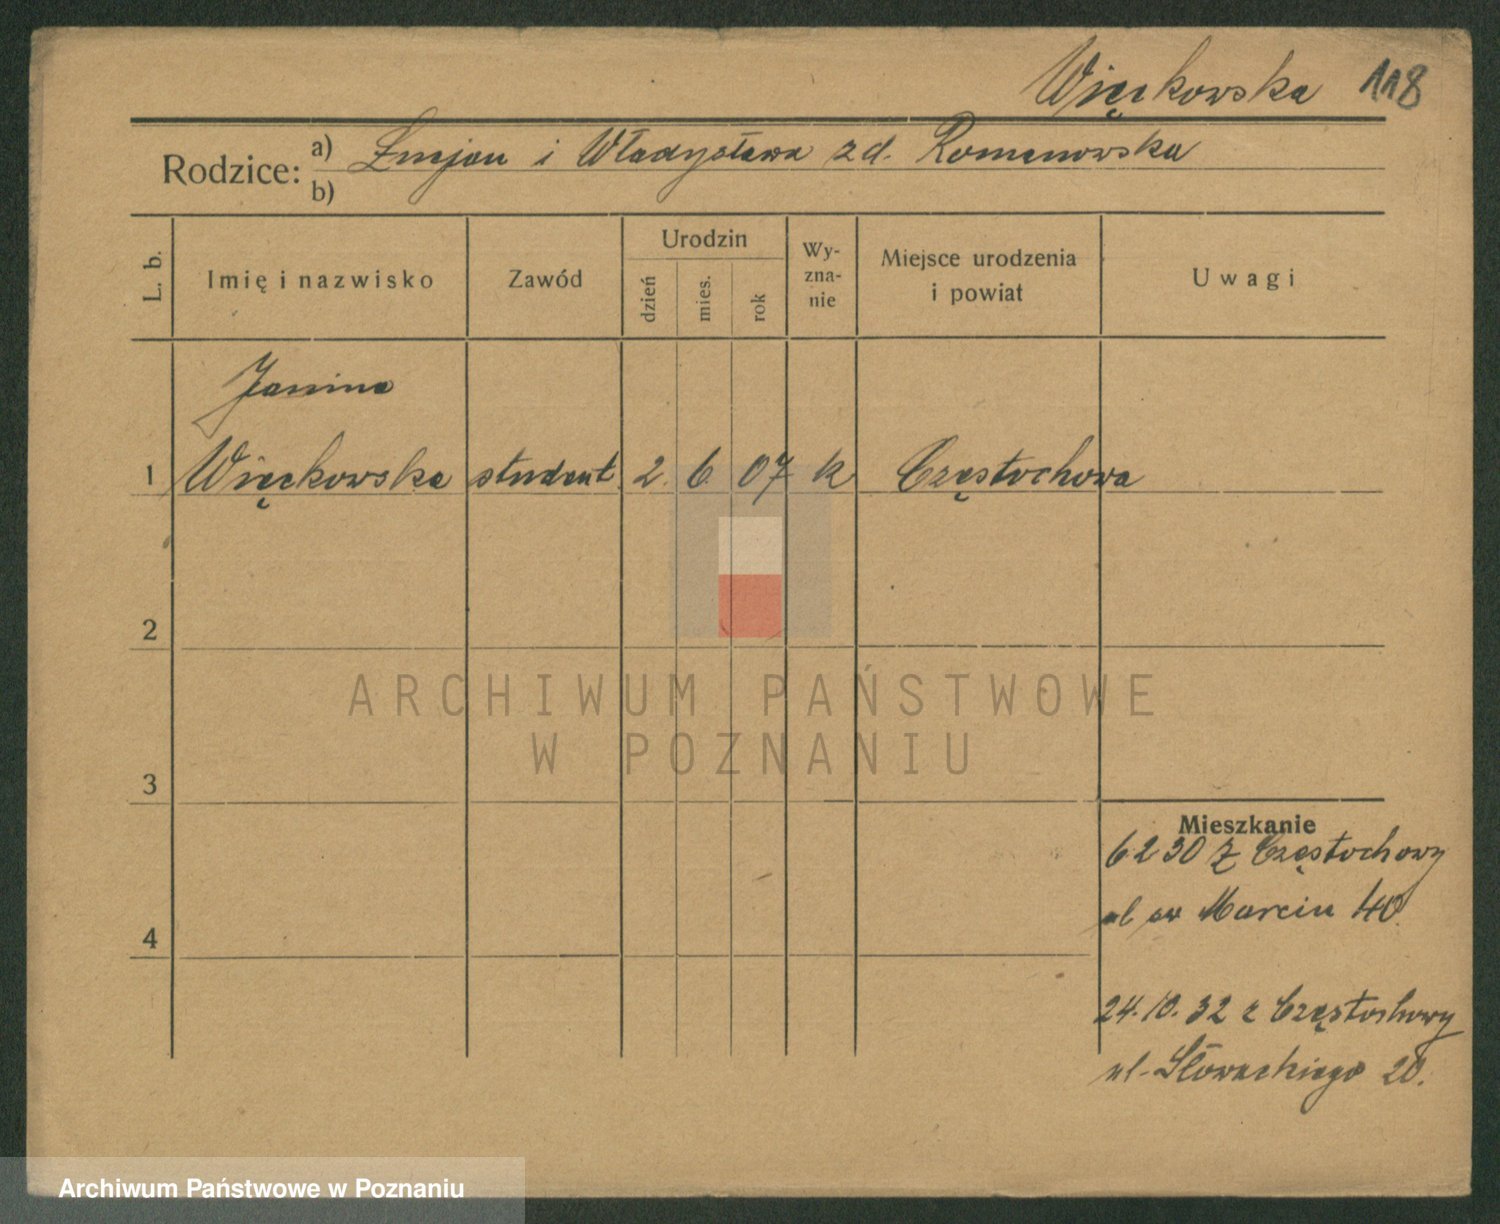 Więckowska 118
Rodzice: a) Lucjan i Władysława zd. Romanowska
b)
L. b.
Imię i nazwisko
Zawód
Urodzin
dzień
mies.
rok
Wy-
zna-
nie
Miejsce urodzenia
i powiat
Uwagi
Janina
1 Więckowska student 2. 6. 07 k Częstochowa
2
3
4
Mieszkanie
6 2 30 z Częstochowy
ul św Marcin 40
24.10.32 z Częstochowy
ul. Słowackiego 20.
ARCHIWUM PAŃSTWOWE
W POZNANIU
Archiwum Państwowe w Poznaniu